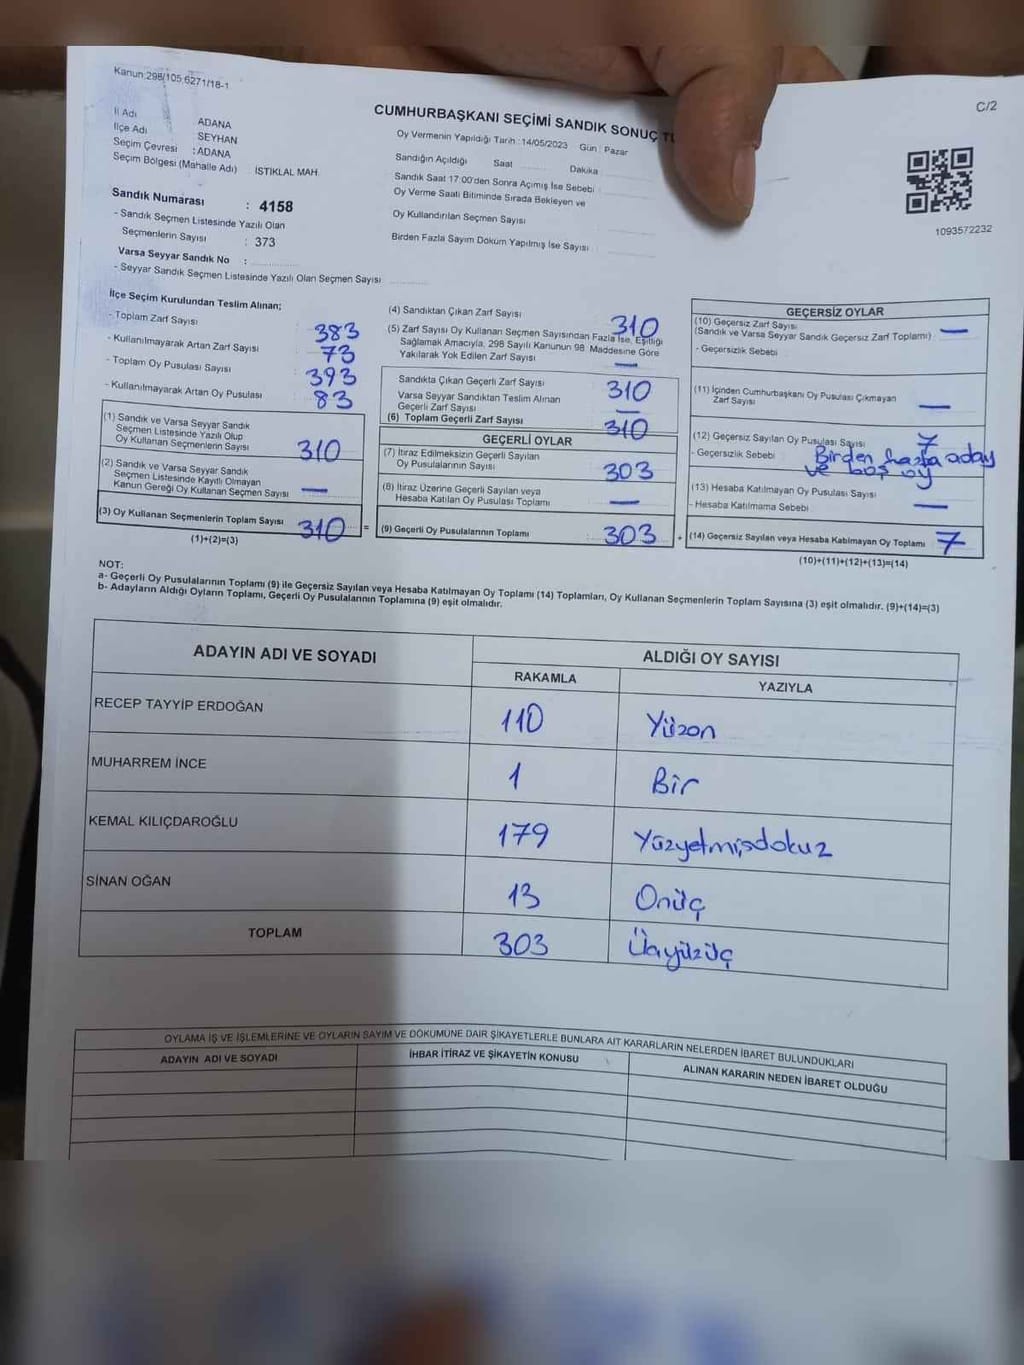 Kanun:298/105,6271/18-1
C/2
CUMHURBAŞKANI SEÇİMİ SANDIK SONUÇ
İl Adı ADANA
İlçe Adı SEYHAN
Seçim Çevresi : ADANA
Seçim Bölgesi (Mahalle Adı) İSTİKLAL MAH.
Oy Vermenin Yapıldığı Tarih :14/05/2023 Gün : Pazar
Sandığın Açıldığı Saat Dakika
Sandık Saat 17:00'den Sonra Açımış İse Sebebi
Oy Verme Saati Bitiminde Sırada Bekleyen ve
Oy Kullandırılan Seçmen Sayısı
Birden Fazla Sayım Döküm Yapılmış İse Sayısı
1093572232
Sandık Numarası : 4158
- Sandık Seçmen Listesinde Yazılı Olan
Seçmenlerin Sayısı : 373
Varsa Seyyar Sandık No :
- Seyyar Sandık Seçmen Listesinde Yazılı Olan Seçmen Sayısı
İlçe Seçim Kurulundan Teslim Alınan;
- Toplam Zarf Sayısı 383
- Kullanılmayarak Artan Zarf Sayısı 73
- Toplam Oy Pusulası Sayısı 393
- Kullanılmayarak Artan Oy Pusulası 83
(1) Sandık ve Varsa Seyyar Sandık
Seçmen Listesinde Yazılı Olup
Oy Kullanan Seçmenlerin Sayısı 310
(2) Sandık ve Varsa Seyyar Sandık
Seçmen Listesinde Kayıtlı Olmayan
Kanun Gereği Oy Kullanan Seçmen Sayısı —
(3) Oy Kullanan Seçmenlerin Toplam Sayısı 310 =
(1)+(2)=(3)
(4) Sandıktan Çıkan Zarf Sayısı 310
(5) Zarf Sayısı Oy Kullanan Seçmen Sayısından Fazla İse, Eşitliği
Sağlamak Amacıyla, 298 Sayılı Kanunun 98. Maddesine Göre
Yakılarak Yok Edilen Zarf Sayısı —
Sandıkta Çıkan Geçerli Zarf Sayısı 310
Varsa Seyyar Sandıktan Teslim Alınan
Geçerli Zarf Sayısı —
(6) Toplam Geçerli Zarf Sayısı 310
GEÇERLİ OYLAR
(7) İtiraz Edilmeksizin Geçerli Sayılan
Oy Pusulalarının Sayısı 303
(8) İtiraz Üzerine Geçerli Sayılan veya
Hesaba Katılan Oy Pusulası Toplamı —
(9) Geçerli Oy Pusulalarının Toplamı : 303 +
GEÇERSİZ OYLAR
(10) Geçersiz Zarf Sayısı
(Sandık ve Varsa Seyyar Sandık Geçersiz Zarf Toplamı) —
- Geçersizlik Sebebi
(11) İçinden Cumhurbaşkanı Oy Pusulası Çıkmayan
Zarf Sayısı —
(12) Geçersiz Sayılan Oy Pusulası Sayısı 7
- Geçersizlik Sebebi Birden fazla aday
ve boş oy
(13) Hesaba Katılmayan Oy Pusulası Sayısı
- Hesaba Katılmama Sebebi —
(14) Geçersiz Sayılan veya Hesaba Katılmayan Oy Toplamı 7
(10)+(11)+(12)+(13)=(14)
NOT:
a- Geçerli Oy Pusulalarının Toplamı (9) ile Geçersiz Sayılan veya Hesaba Katılmayan Oy Toplamı (14) Toplamları, Oy Kullanan Seçmenlerin Toplam Sayısına (3) eşit olmalıdır. (9)+(14)=(3)
b- Adayların Aldığı Oyların Toplamı, Geçerli Oy Pusulalarının Toplamına (9) eşit olmalıdır.
ADAYIN ADI VE SOYADI ALDIĞI OY SAYISI
RAKAMLA YAZIYLA
RECEP TAYYİP ERDOĞAN 110 Yüzon
MUHARREM İNCE 1 Bir
KEMAL KILIÇDAROĞLU 179 Yüzyetmişdokuz
SİNAN OĞAN 13 Onüç
TOPLAM 303 Üçyüzüç
OYLAMA İŞ VE İŞLEMLERİNE VE OYLARIN SAYIM VE DÖKÜMÜNE DAİR ŞİKAYETLERLE BUNLARA AİT KARARLARIN NELERDEN İBARET BULUNDUKLARI
ADAYIN ADI VE SOYADI İHBAR İTİRAZ VE ŞİKAYETİN KONUSU ALINAN KARARIN NEDEN İBARET OLDUĞU